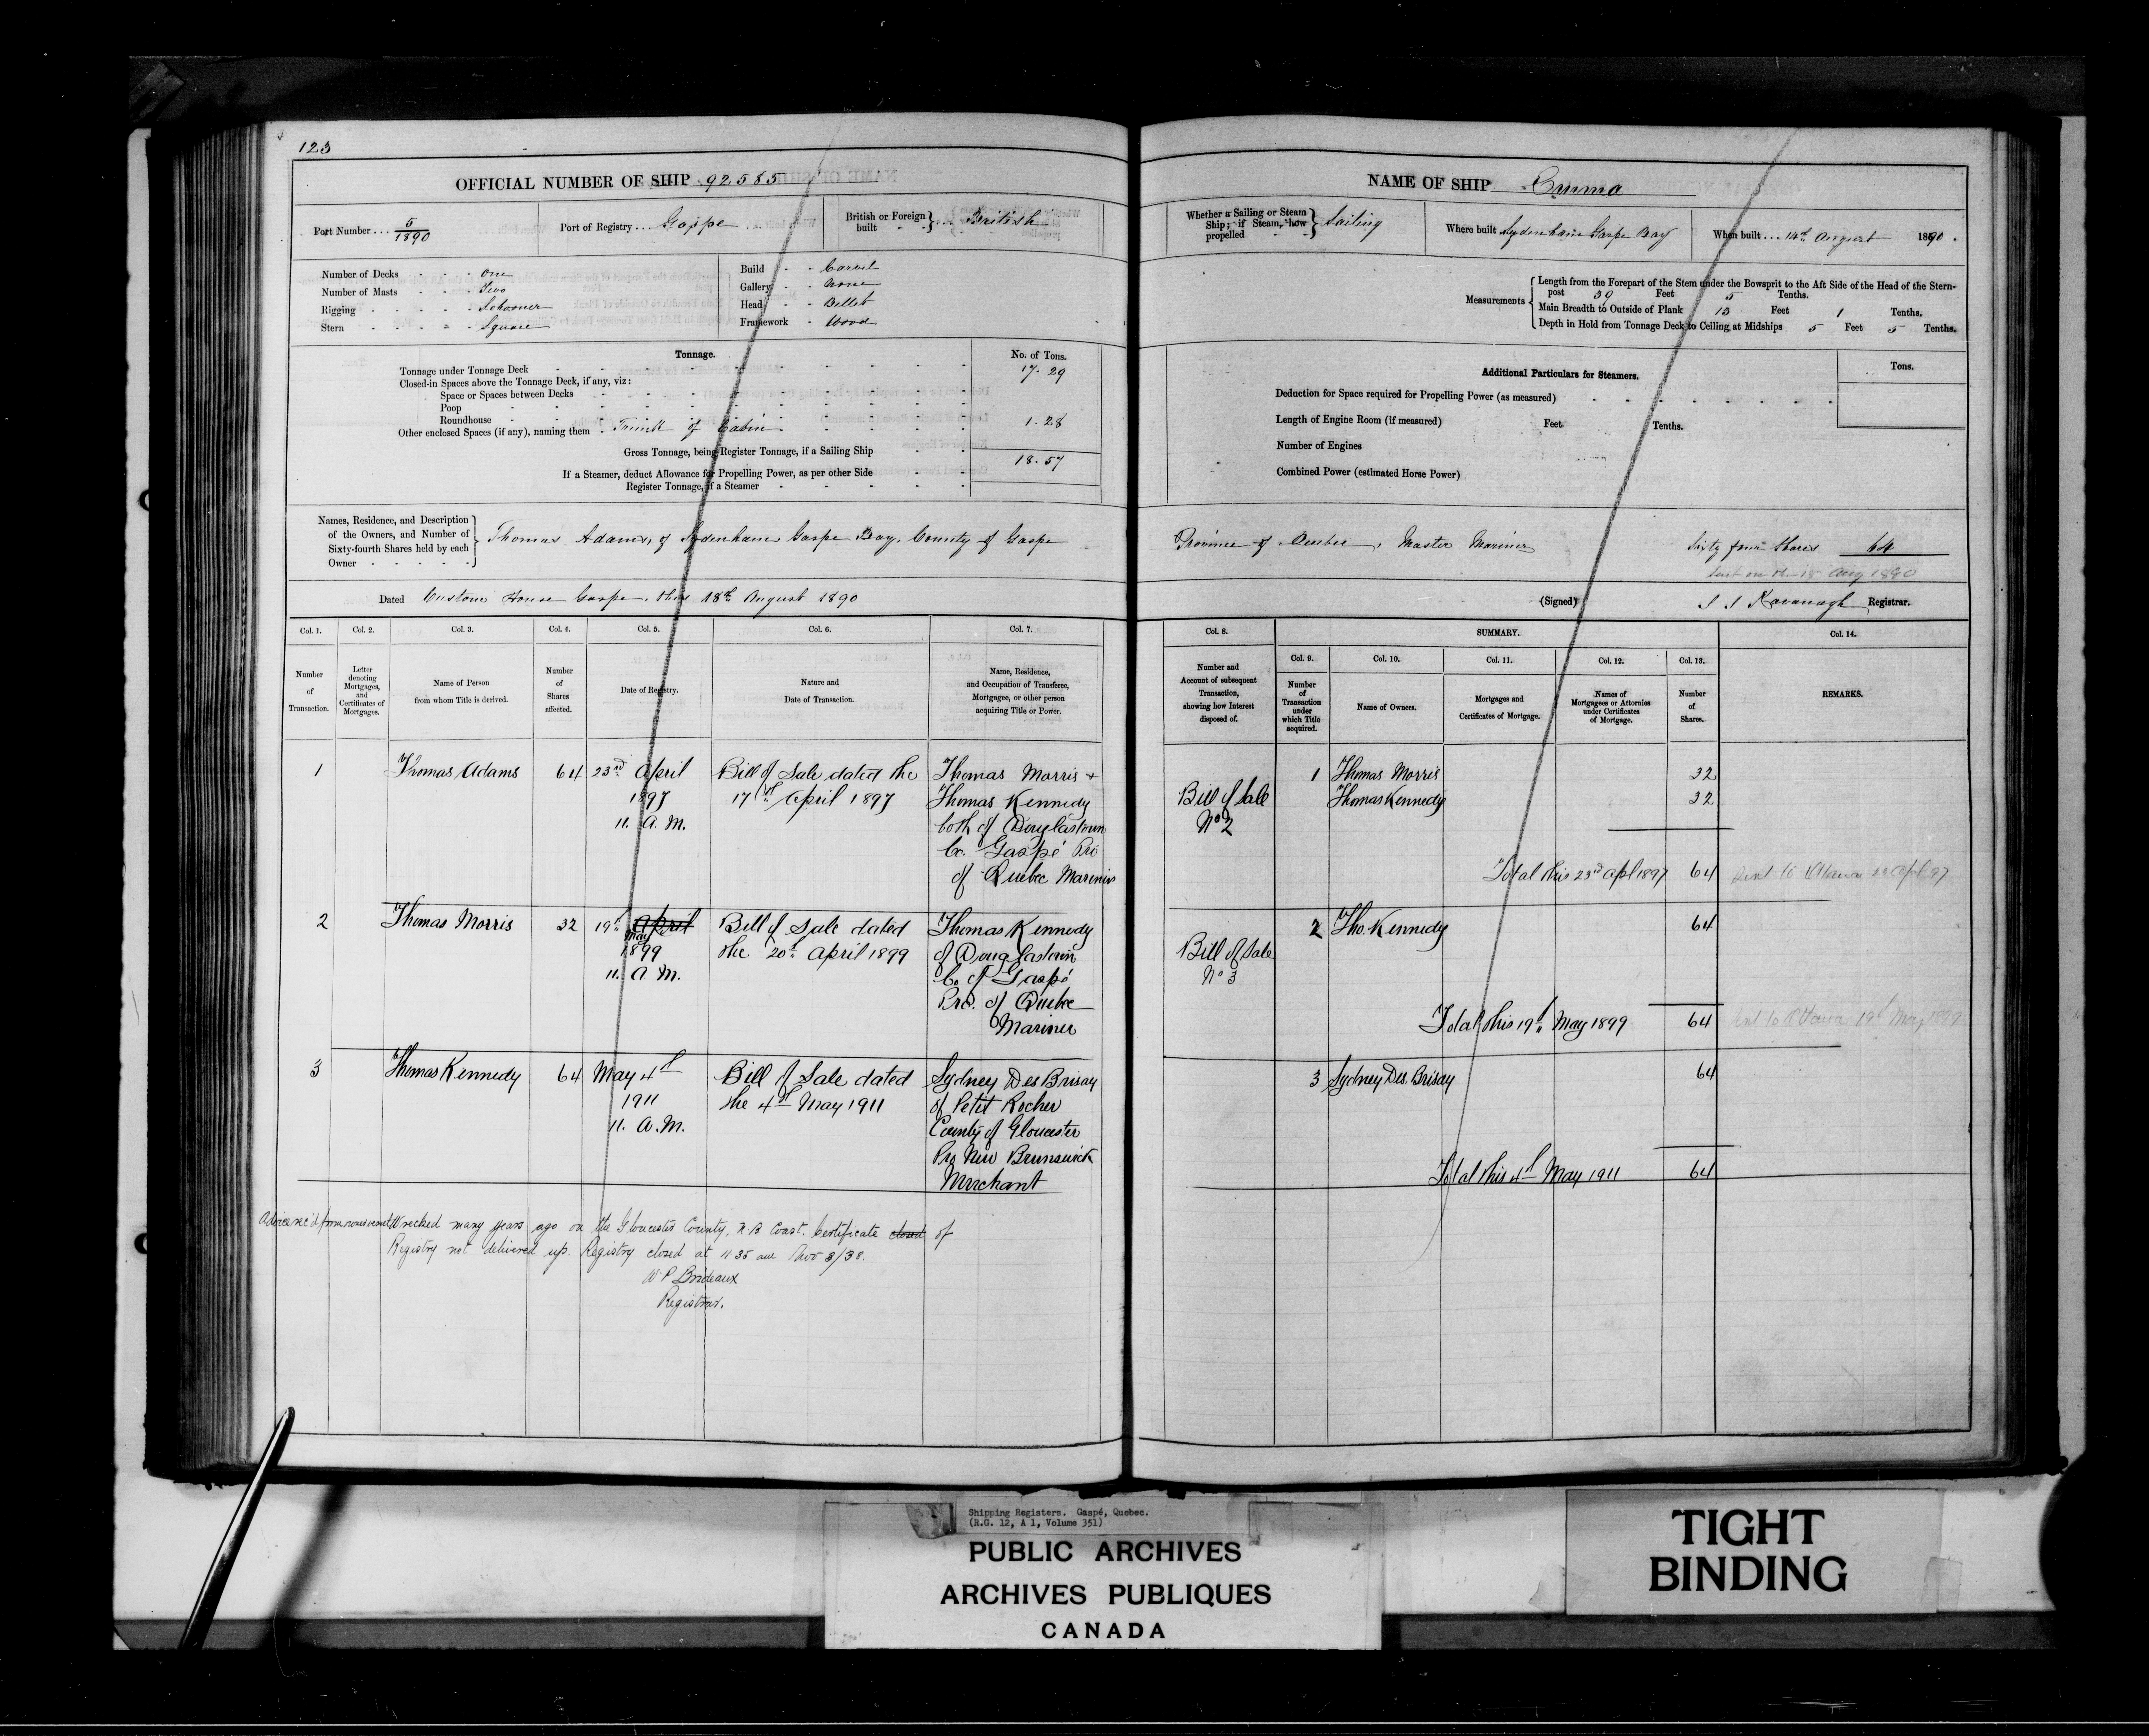 123
OFFICIAL NUMBER OF SHIP 92585
Port Number 5/1890
Port of Registry Gaspe
British or Foreign built British
Number of Decks One
Number of Masts Two
Rigging Schooner
Stern Square
Build Carvel
Gallery None
Head Billet
Framework Wood
Tonnage.
No. of Tons.
Tonnage under Tonnage Deck 17.29
Closed-in Spaces above the Tonnage Deck, if any, viz:
Space or Spaces between Decks
Poop
Roundhouse
Other enclosed Spaces (if any), naming them Trunk of Cabin 1.28
Gross Tonnage, being Register Tonnage, if a Sailing Ship 18.57
If a Steamer, deduct Allowance for Propelling Power, as per other Side
Register Tonnage, if a Steamer
NAME OF SHIP Emma
Whether a Sailing or Steam Ship; if Steam, how propelled Sailing
Where built Sydenham Gaspe Bay
When built 14th August 1890.
Measurements
Length from the Forepart of the Stem under the Bowsprit to the Aft Side of the Head of the Stern-
post 39 Feet 5 Tenths.
Main Breadth to Outside of Plank 13 Feet 1 Tenths.
Depth in Hold from Tonnage Deck to Ceiling at Midships 5 Feet 5 Tenths.
Additional Particulars for Steamers.
Tons.
Deduction for Space required for Propelling Power (as measured)
Length of Engine Room (if measured) Feet Tenths.
Number of Engines
Combined Power (estimated Horse Power)
Names, Residence, and Description
of the Owners, and Number of
Sixty-fourth Shares held by each
Owner
Thomas Adams, of Sydenham Gaspe Bay, County of Gaspe Province of Quebec, Master Mariner Sixty four Shares 64
Sent on the 18 Aug 1890
Dated Custom House Gaspe, this 18th August 1890
(Signed) J J Kavanagh Registrar.
Col. 1. Col. 2. Col. 3. Col. 4. Col. 5. Col. 6. Col. 7.
Number of Transaction.
Letter denoting Mortgages, and Certificates of Mortgages.
Name of Person from whom Title is derived.
Number of Shares affected.
Date of Registry.
Nature and Date of Transaction.
Name, Residence, and Occupation of Transferee, Mortgagee, or other person acquiring Title or Power.
Col. 8. SUMMARY. Col. 14.
Col. 9. Col. 10. Col. 11. Col. 12. Col. 13.
Number and Account of subsequent Transaction, showing how Interest disposed of.
Number of Transaction under which Title acquired.
Name of Owners.
Mortgages and Certificates of Mortgage.
Names of Mortgagees or Attornies under Certificates of Mortgage.
Number of Shares.
REMARKS.
1 Thomas Adams 64 23rd April Bill of Sale dated the Thomas Morris +
1897 17th April 1897 Thomas Kennedy
11. A.M. both of Douglastown
Co. Gaspé Pro
of Quebec Mariners
Bill of Sale
No 2
1 Thomas Morris 32
Thomas Kennedy 32
Total this 23rd Apl 1897 64 Sent to Ottawa 23 Apl 97
2 Thomas Morris 32 19th April Bill of Sale dated Thomas Kennedy
May
1899 the 20th April 1899 of Douglastown
11. A.M. Co. of Gaspé
Pro. of Quebec
Mariner
Bill of Sale
No 3
2 Tho. Kennedy 64
Total this 19th May 1899 64 Sent to Ottawa 19th May 1899
3 Thomas Kennedy 64 May 4th Bill of Sale dated Sydney Des Brisay
1911 the 4th May 1911 of Petit Rocher
11. A.M. County of Gloucester
Pro New Brunswick
Merchant
3 Sydney Des Brisay 64
Total this 4th May 1911 64
Advice rec'd from Wrecked many years ago on the Gloucester County, N B Coast. Certificate closed of
Registry not delivered up. Registry closed at 11 35 am Nov 3/38.
W P Brideaux
Registrar.
Shipping Registers. Gaspé, Quebec.
(R.G. 12, A 1, Volume 351)
PUBLIC ARCHIVES
ARCHIVES PUBLIQUES
CANADA
TIGHT
BINDING